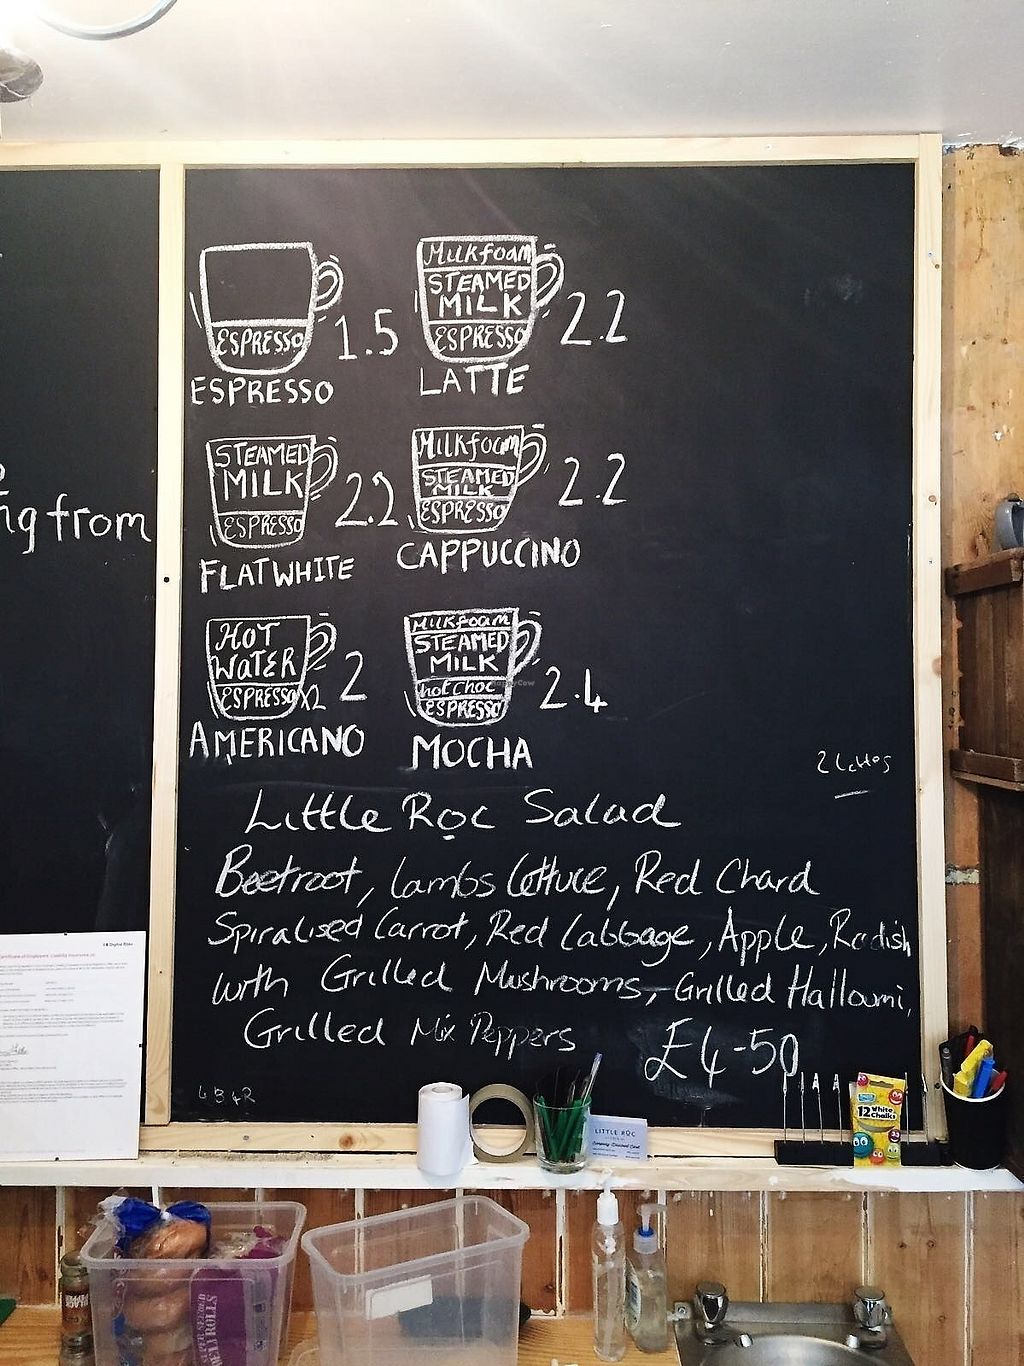 ESPRESSO
1.5
ESPRESSO
Milkfoam
STEAMED
MILK
ESPRESSO
2.2
LATTE
STEAMED
MILK
ESPRESSO
2.2
FLATWHITE
Milkfoam
STEAMED
MILK
ESPRESSO
2.2
CAPPUCCINO
HOT
WATER
ESPRESSO X2
2
AMERICANO
Milkfoam
STEAMED
MILK
hot choc
ESPRESSO
2.4
MOCHA
ng from
Little Roc Salad
Beetroot, Lambs Lettuce, Red Chard
Spiralised Carrot, Red Cabbage, Apple, Radish
with Grilled Mushrooms, Grilled Halloumi,
Grilled Mix Peppers £4-50
4B4R
LITTLE ROC
12 White
Chalks
HappyCow